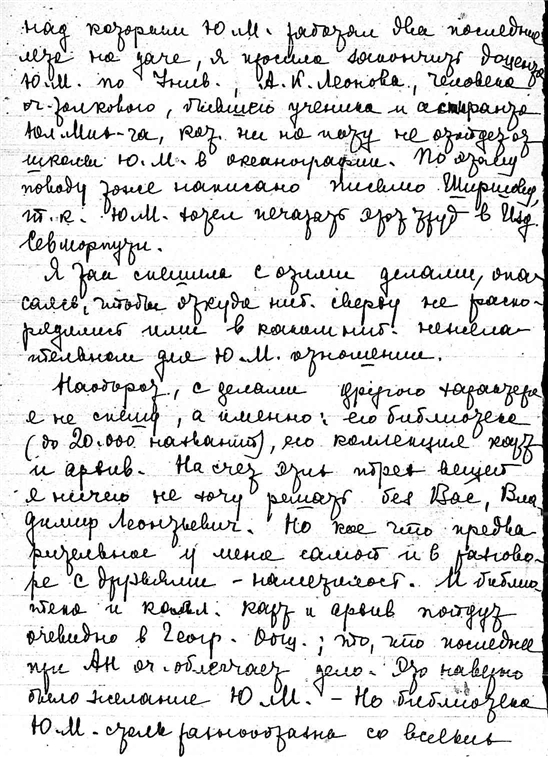 над которым Ю.М. работал два последние
лета на даче, я просила закончить доцента
Ю.М. по Унив., А.К. Леонова, человека
оч. толкового, бывшего ученика и аспиранта
Юл. Мих-ча, кот. ни на йоту не отойдет от
школы Ю.М. в океанографии. По этому
поводу тоже написано письмо Ширшову,
т.к. Ю.М. хотел печатать этот труд в Изд.
Севморпути.
Я так спешила с этими делами, опа-
саясь, чтобы откуда ниб. сверху не распо-
рядились ими в каком ниб. нежела-
тельном для Ю.М. отношении.
Наоборот, с делами другого характера
я не спешу, а именно: его библиотека
(до 20.000 названий), его коллекция карт
и архив. На счет этих трех вещей
я ничего не хочу решать без Вас, Вла-
димир Леонтьевич. Но кое что предва-
рительное у меня самой и в разгово-
ре с друзьями – наметилось. И библио-
тека и колл. карт и архив пойдут
очевидно в Геогр. Общ.; то, что последнее
при АН оч. облегчает дело. Это наверно
было желание Ю.М. – Но библиотека
Ю.М. столь разнообразна со всякими